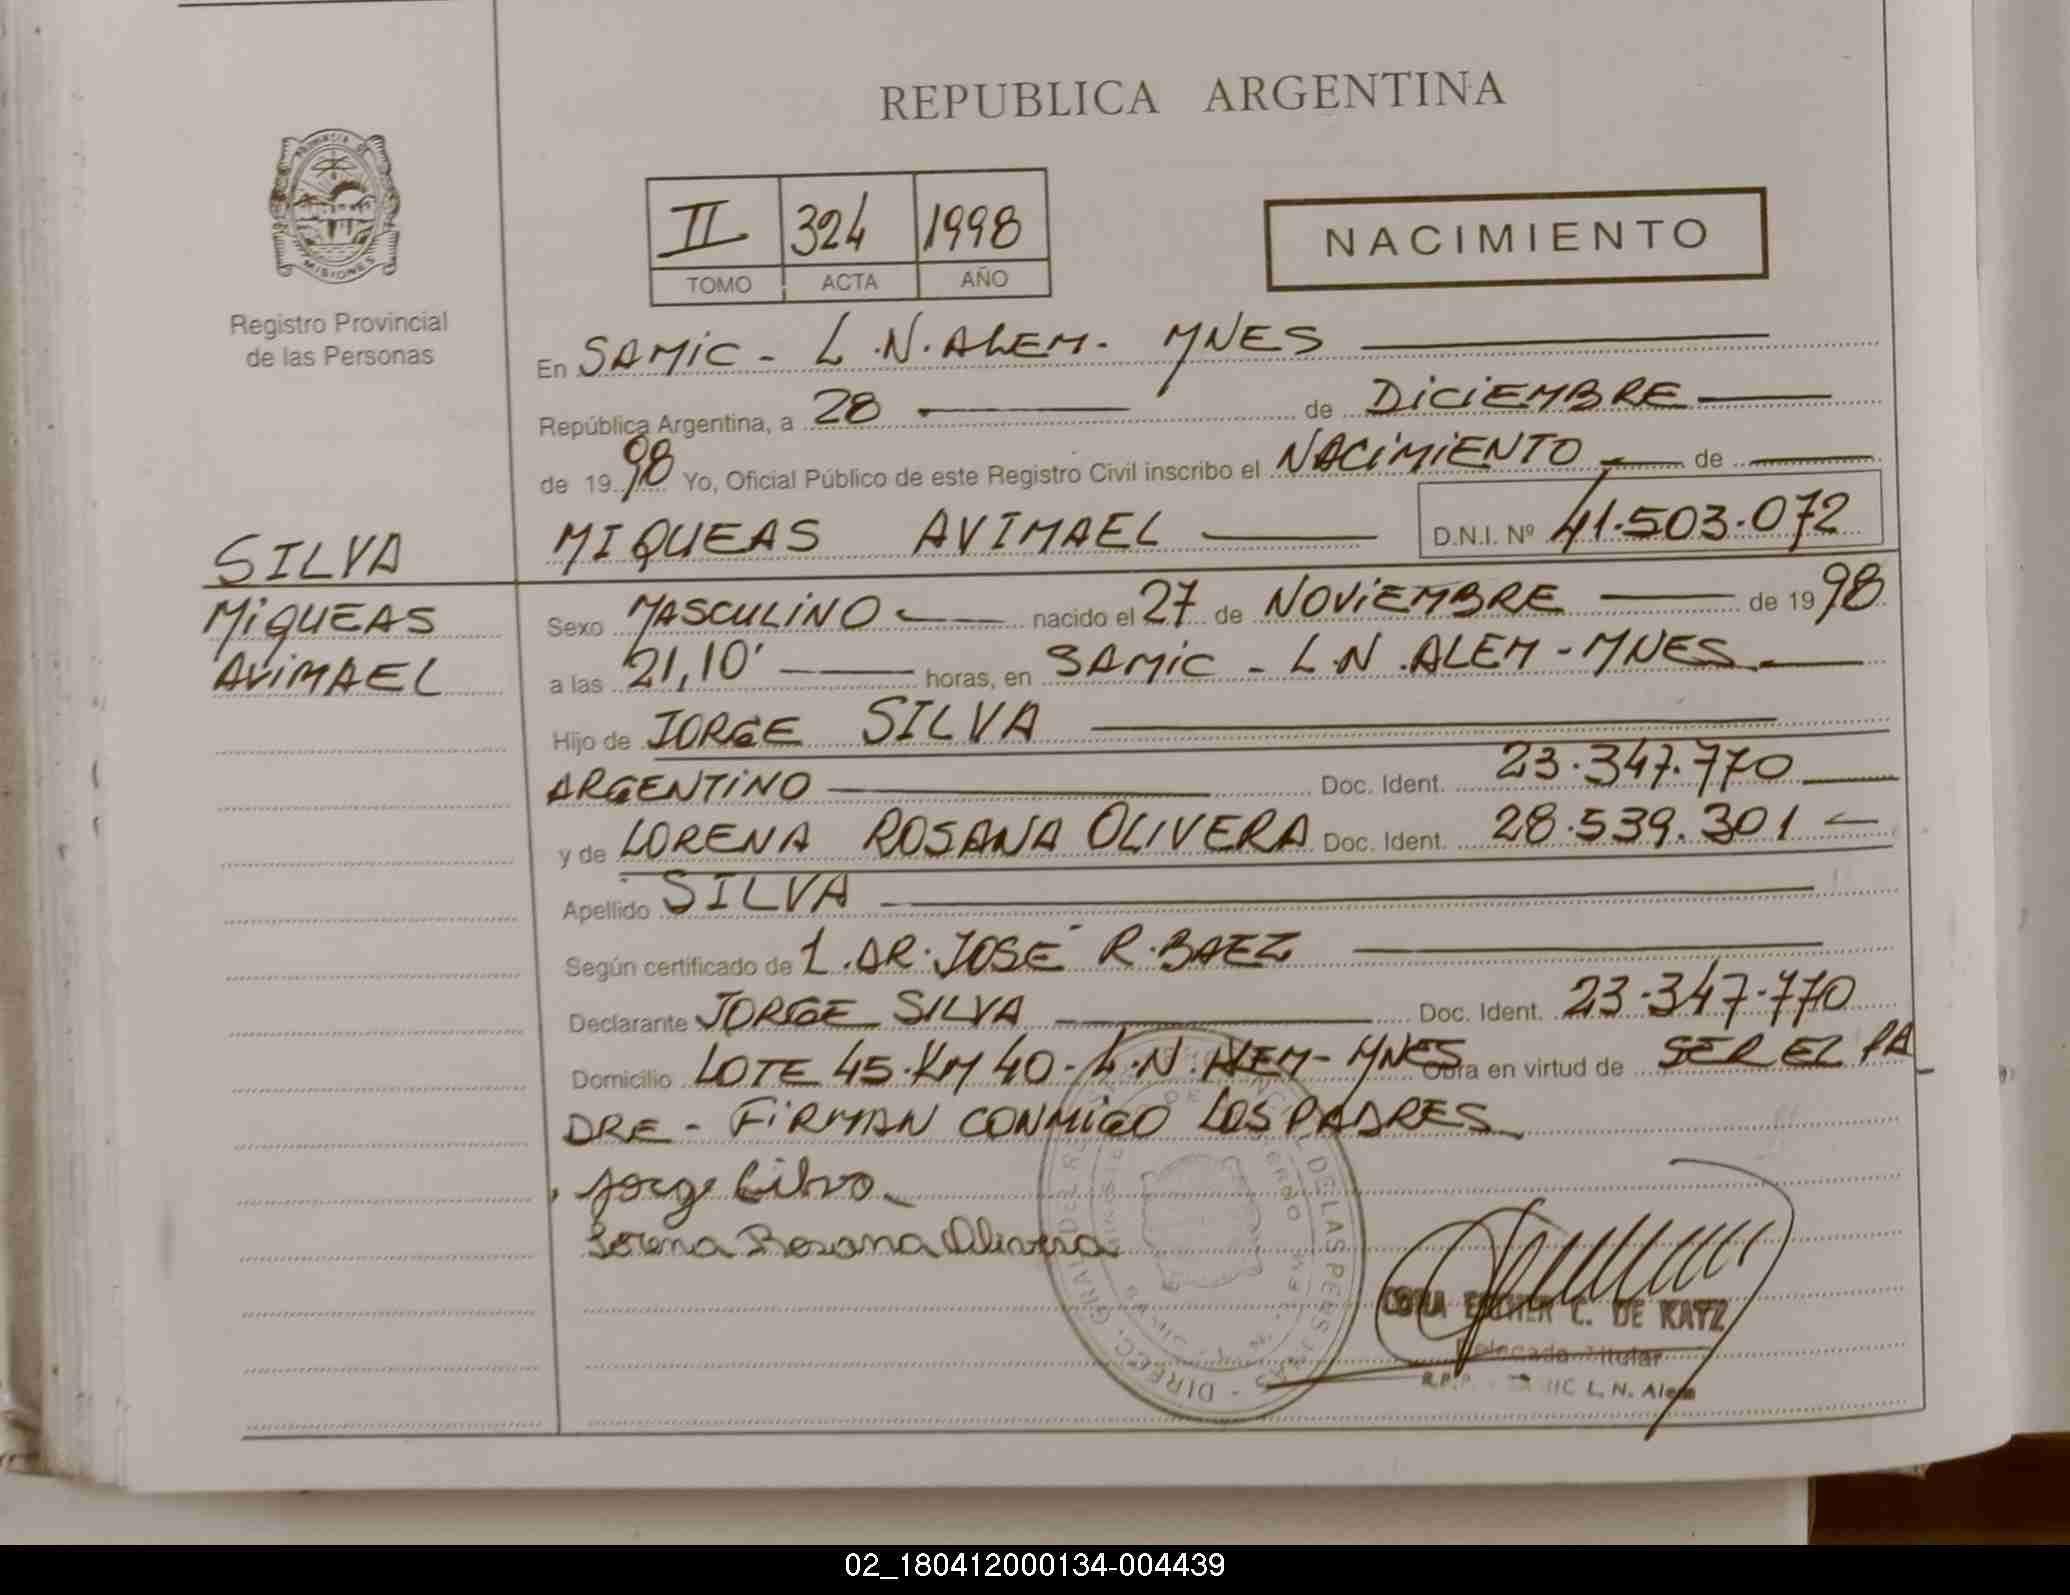 REPUBLICA ARGENTINA
PROVINCIA DE MISIONES
Registro Provincial
de las Personas
II 324 1998
TOMO ACTA AÑO
NACIMIENTO
En SAMIC - L.N. ALEM - MNES
República Argentina, a 28 de DICIEMBRE
de 1998 Yo, Oficial Público de este Registro Civil inscribo el NACIMIENTO de
MIQUEAS AVIMAEL D.N.I. Nº 41.503.072
SILVA
MIQUEAS
AVIMAEL
Sexo MASCULINO nacido el 27 de NOVIEMBRE de 1998
a las 21,10' horas, en SAMIC - L.N. ALEM - MNES
Hijo de JORGE SILVA
ARGENTINO Doc. Ident. 23.347.770
y de LORENA ROSANA OLIVERA Doc. Ident. 28.539.301
Apellido SILVA
Según certificado de 1. DR. JOSÉ R. BAEZ
Declarante JORGE SILVA Doc. Ident. 23.347.770
Domicilio LOTE 45. KM 40 - L.N. ALEM - MNES Obra en virtud de SER EL PA
DRE - FIRMAN CONMIGO LOS PADRES
Jorge Silva
Lorena Rosana Olivera
DIREC. GRAL DEL DE LAS PERSONAS
ESTHER C. DE KATZ
Delegada Titular
R.P.P. L. N. Alem
02_180412000134-004439